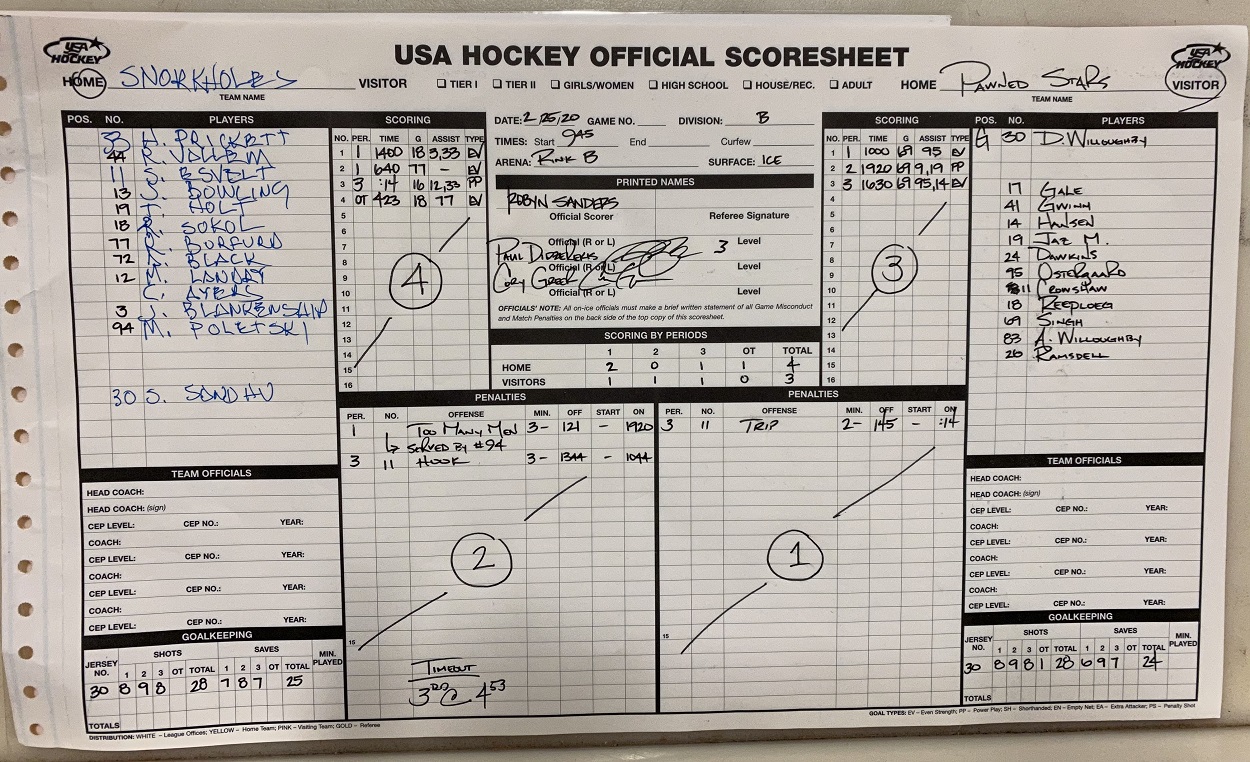 USA HOCKEY
USA HOCKEY OFFICIAL SCORESHEET
USA HOCKEY
HOME SNORKHOLES VISITOR
TEAM NAME
☐ TIER I ☐ TIER II ☐ GIRLS/WOMEN ☐ HIGH SCHOOL ☐ HOUSE/REC. ☐ ADULT
HOME PAWNED STARS VISITOR
TEAM NAME
POS. NO. PLAYERS
33 H. PRICKETT
44 R. VOLLEM
11 S. ESVELT
13 J. BOWLING
19 T. HOLT
18 R. SOKOL
77 R. BURFURD
72 A. BLACK
12 M. LANDAY
C. AYERS
3 J. BLANKENSHIP
94 M. POLETSKI
30 S. SONDHU
SCORING
NO. PER. TIME G ASSIST TYPE
1 1 1400 18 3,33 EV
2 1 640 77 - EV
3 3 :14 16 12,33 PP
4 OT 423 18 77 EV
5
6
7
8
9
10
11
12
13
14
15
16
4
DATE: 2/25/20 GAME NO. DIVISION: B
TIMES: Start 945 End Curfew
ARENA: RINK B SURFACE: ICE
PRINTED NAMES
ROBYN SANDERS
Official Scorer Referee Signature
Official (R or L) 3 Level
PAUL
Official (R or L) Level
CORY
Official (R or L) Level
OFFICIALS' NOTE: All on-ice officials must make a brief written statement of all Game Misconduct
and Match Penalties on the back side of the top copy of this scoresheet.
SCORING BY PERIODS
1 2 3 OT TOTAL
HOME 2 0 1 1 4
VISITORS 1 1 1 0 3
SCORING
NO. PER. TIME G ASSIST TYPE
1 1 1000 69 95 EV
2 2 1920 69 9,19 PP
3 3 1630 69 95,14 EV
4
5
6
7
8
9
10
11
12
13
14
15
16
3
POS. NO. PLAYERS
G 30 D. WILLOUGHBY
17 GALE
41 GWINN
14 HANSEN
19 JAZ M.
24 DAWKINS
95 OSTERGAARD
11 CRONSHAW
18 REEPLOEG
69 SINGH
83 A. WILLOUGHBY
26 RAMSDELL
PENALTIES
PER. NO. OFFENSE MIN. OFF START ON
1 TOO MANY MEN 3- 121 - 1920
↳ SERVED BY #94
3 11 HOOK 3- 1344 - 1044
2
15
TIMEOUT
3RD @ 453
PENALTIES
PER. NO. OFFENSE MIN. OFF START ON
3 11 TRIP 2- 145 - :14
1
15
TEAM OFFICIALS
HEAD COACH:
HEAD COACH: (sign)
CEP LEVEL: CEP NO.: YEAR:
COACH:
CEP LEVEL: CEP NO.: YEAR:
COACH:
CEP LEVEL: CEP NO.: YEAR:
COACH:
CEP LEVEL: CEP NO.: YEAR:
GOALKEEPING
JERSEY NO. SHOTS SAVES MIN. PLAYED
1 2 3 OT TOTAL 1 2 3 OT TOTAL
30 8 9 8 28 7 8 7 25
TOTALS
TEAM OFFICIALS
HEAD COACH:
HEAD COACH: (sign)
CEP LEVEL: CEP NO.: YEAR:
COACH:
CEP LEVEL: CEP NO.: YEAR:
COACH:
CEP LEVEL: CEP NO.: YEAR:
COACH:
CEP LEVEL: CEP NO.: YEAR:
GOALKEEPING
JERSEY NO. SHOTS SAVES MIN. PLAYED
1 2 3 OT TOTAL 1 2 3 OT TOTAL
30 8 9 8 1 28 6 9 7 24
TOTALS
DISTRIBUTION: WHITE – League Offices; YELLOW – Home Team; PINK – Visiting Team; GOLD – Referee
GOAL TYPES: EV – Even Strength; PP – Power Play; SH – Shorthanded; EN – Empty Net; EA – Extra Attacker; PS – Penalty Shot